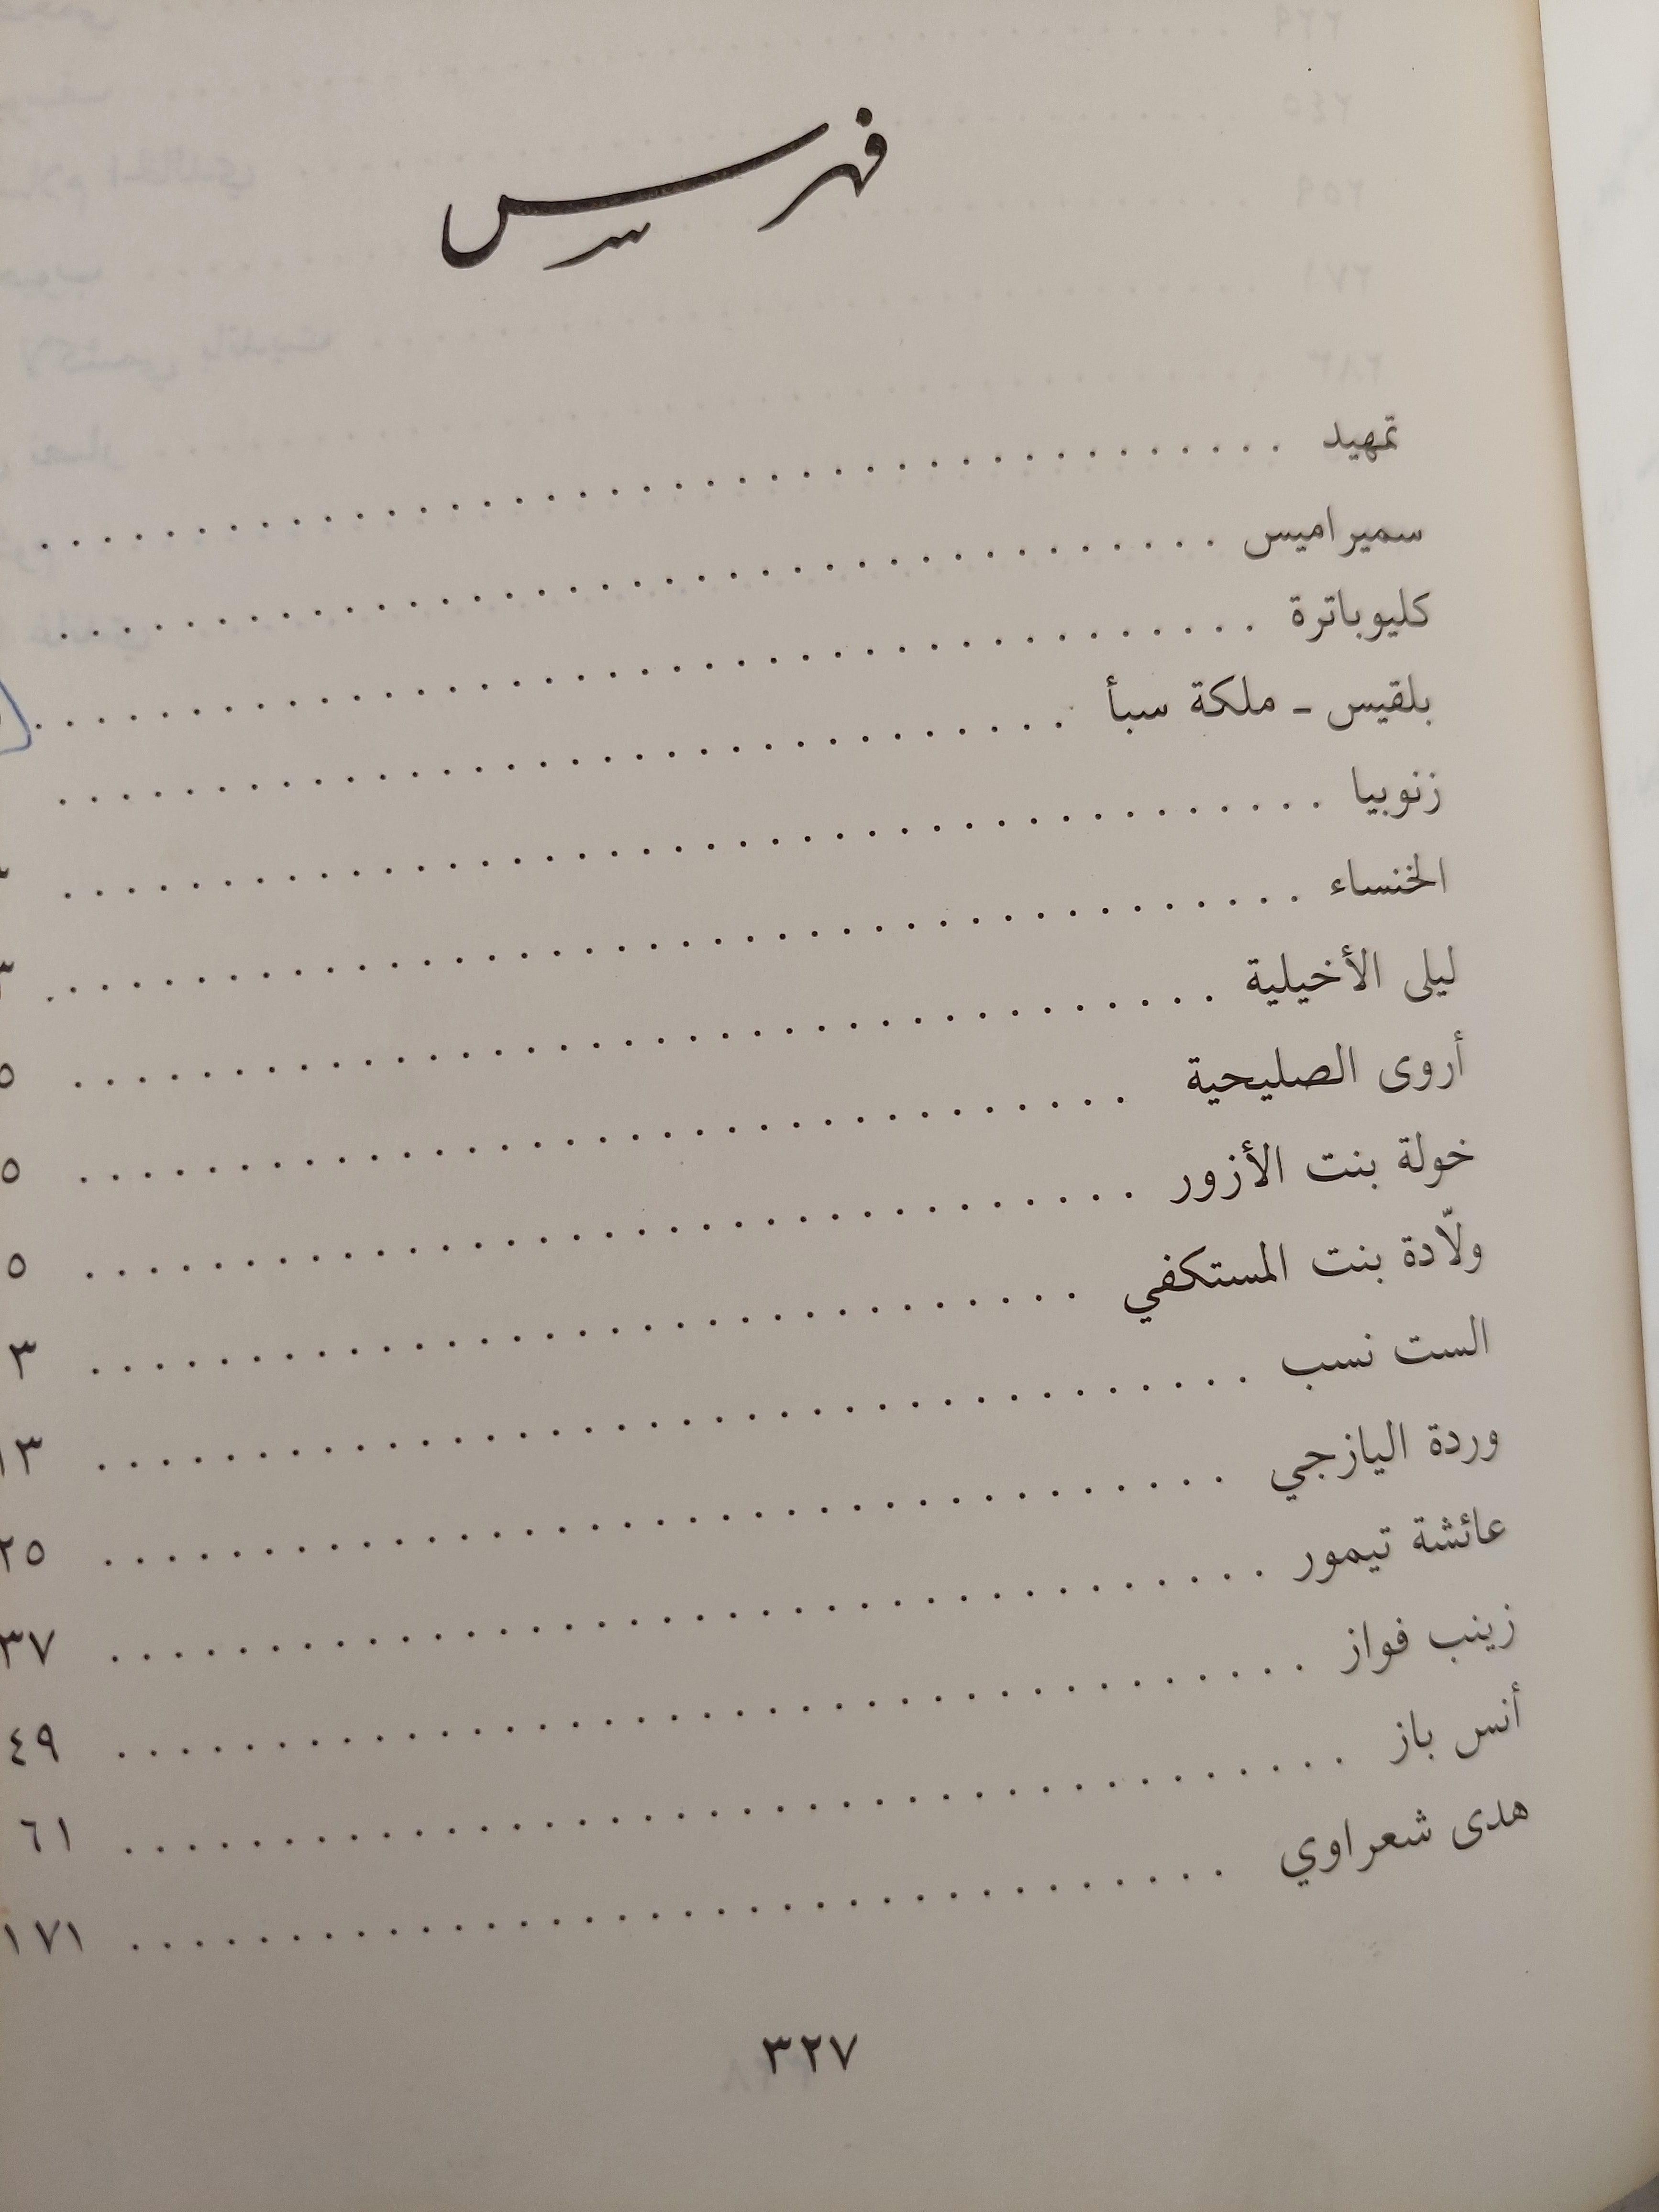 فهرس
تمهيد
سميراميس
كليوباترة
بلقيس - ملكة سبأ
زنوبيا
الخنساء
ليلى الأخيلية
أروى الصليحية ٥
خولة بنت الأزور ٥
ولّادة بنت المستكفي ٥
الست نسب ٣
وردة اليازجي ١٣
عائشة تيمور ٢٥
زينب فواز ٣٧
أنس باز ٤٩
هدى شعراوي ٦١
١٧١
٣٢٧